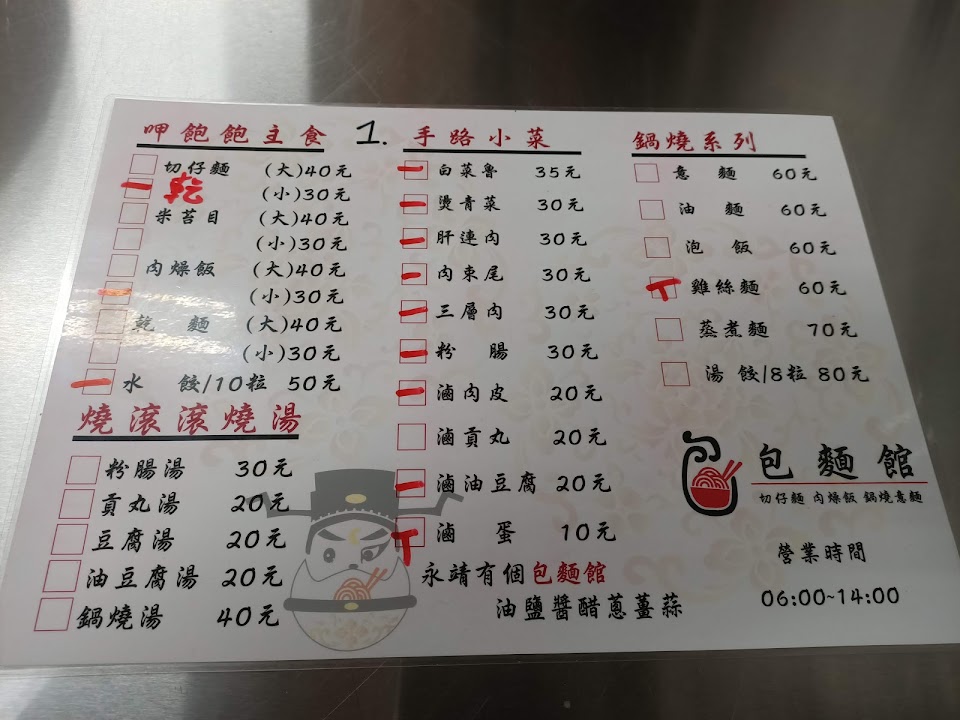 呷飽飽主食
切仔麵 (大)40元
乾 (小)30元
米苔目 (大)40元
(小)30元
肉燥飯 (大)40元
(小)30元
乾 麵 (大)40元
(小)30元
水 餃/10粒 50元
燒滾滾燒湯
粉腸湯 30元
貢丸湯 20元
豆腐湯 20元
油豆腐湯 20元
鍋燒湯 40元
1. 手路小菜
白菜魯 35元
燙青菜 30元
肝連肉 30元
肉束尾 30元
三層肉 30元
粉 腸 30元
滷肉皮 20元
滷貢丸 20元
滷油豆腐 20元
滷 蛋 10元
永靖有個包麵館
油鹽醬醋蔥薑蒜
鍋燒系列
意 麵 60元
油 麵 60元
泡 飯 60元
雞絲麵 60元
蒸煮麵 70元
湯 餃/8粒 80元
包麵館
切仔麵 肉燥飯 鍋燒意麵
營業時間
06:00~14:00